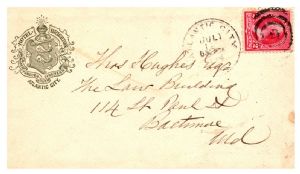 HOTEL
ATLANTIC CITY
ATLANTIC CITY
JUL 1
Thos Hughes Esq
The Law Building
114 St Paul St
Baltimore
Md